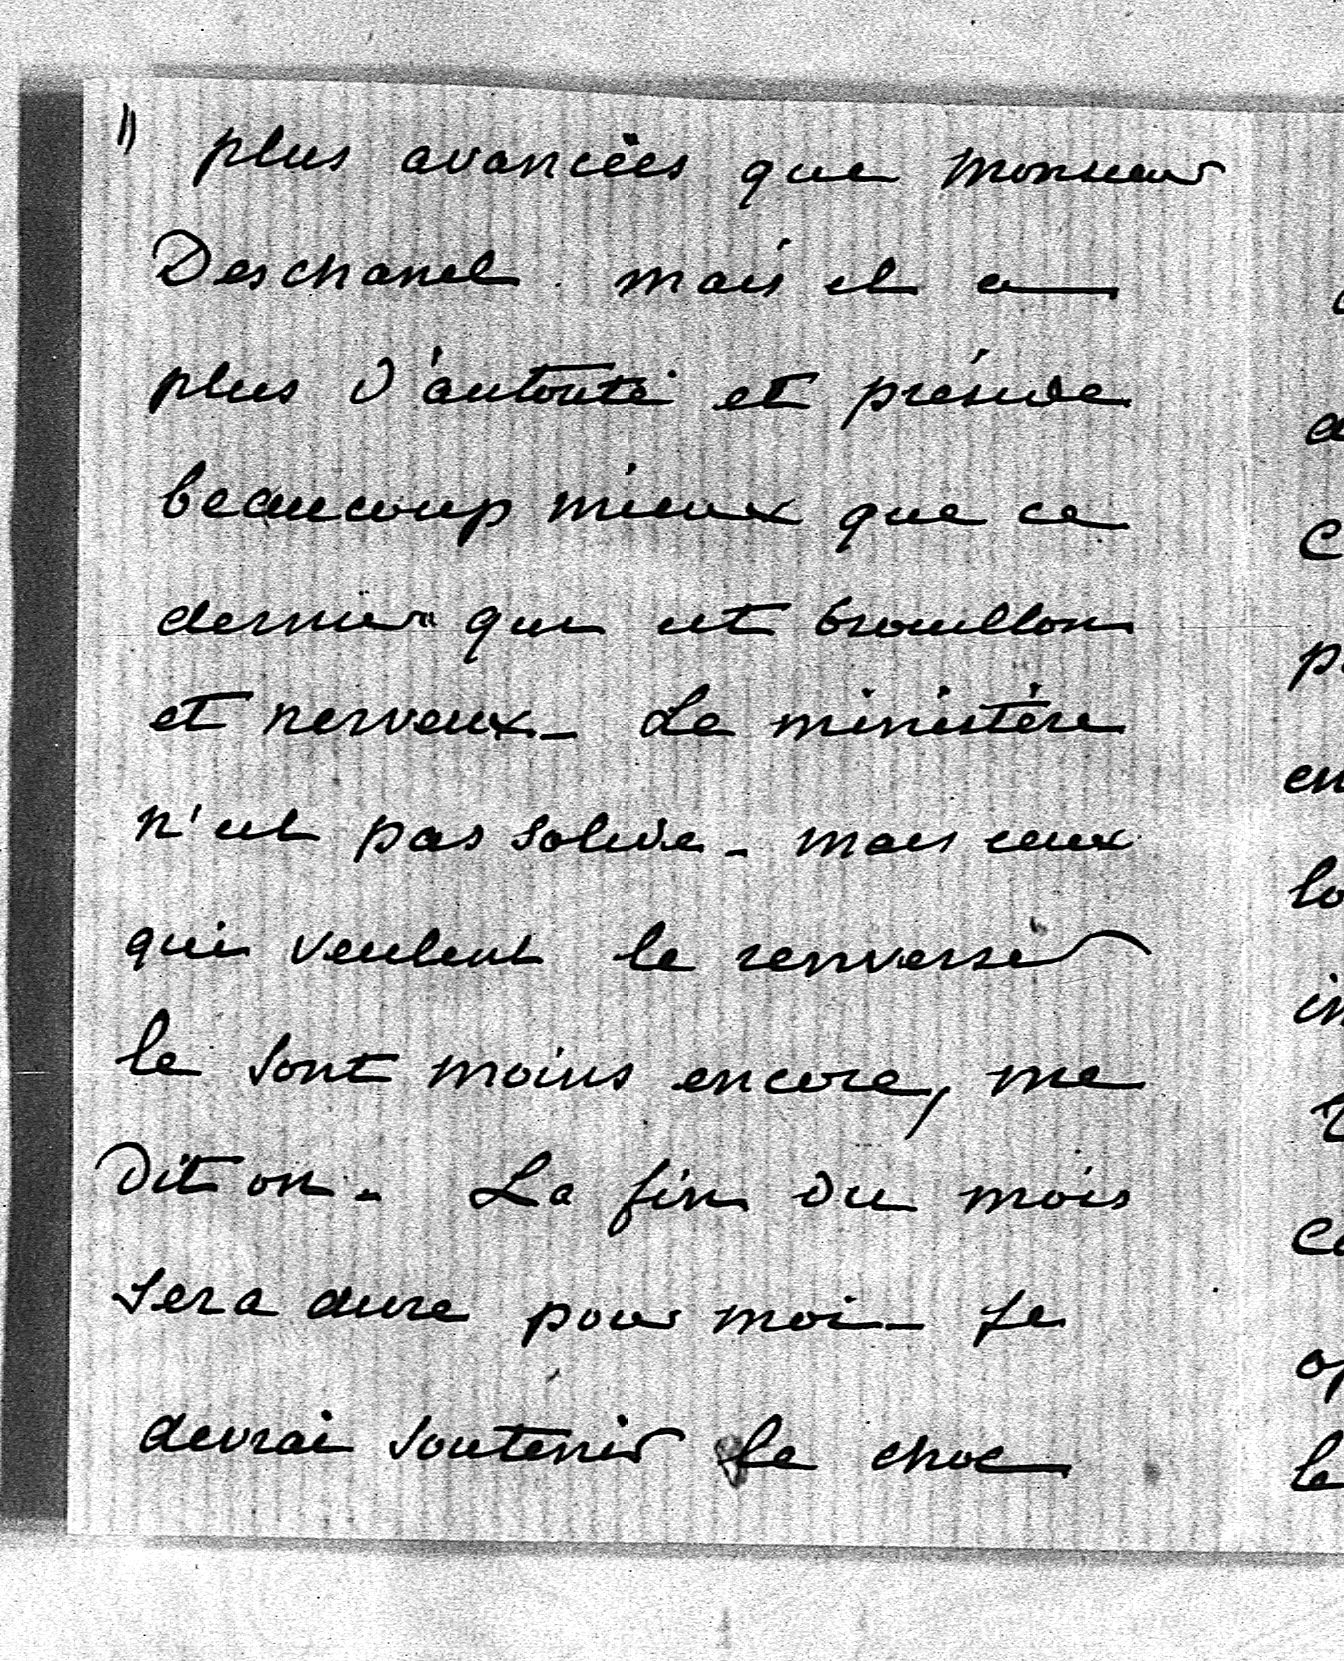 11 plus avancées que Monsieur
Deschanel. mais il a
plus d'autorité et préside
beaucoup mieux que ce
dernier qui est brouillon
et nerveux - Le ministère
n'est pas solide - mais ceux
qui veulent le renverser
le sont moins encore, me
dit on - La fin du mois
sera dure pour moi - Je
devrai soutenir le choc